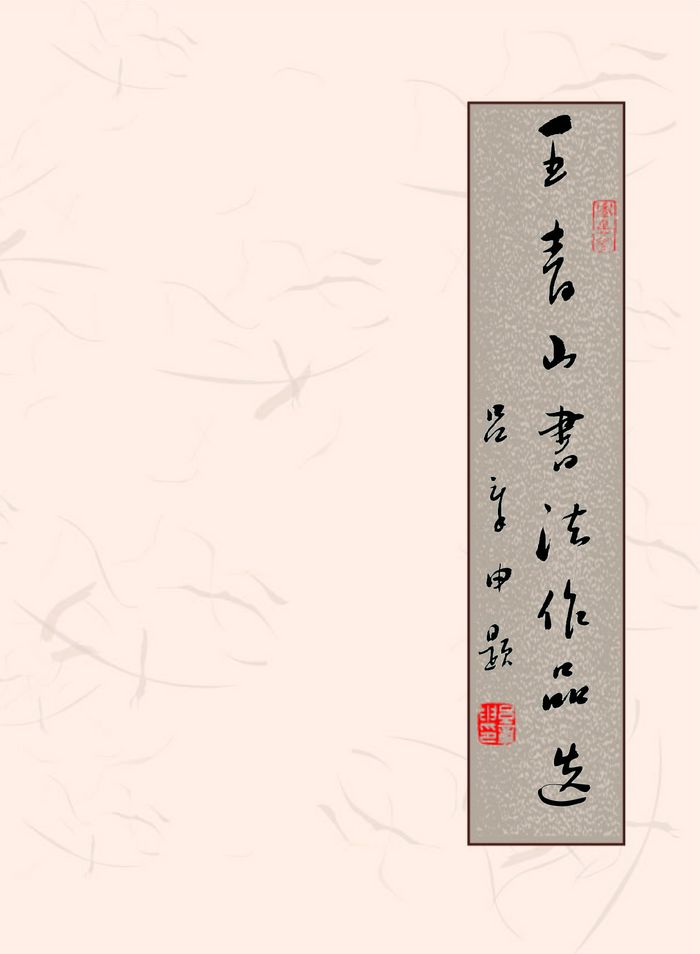 王青山书法作品选
吕章申题